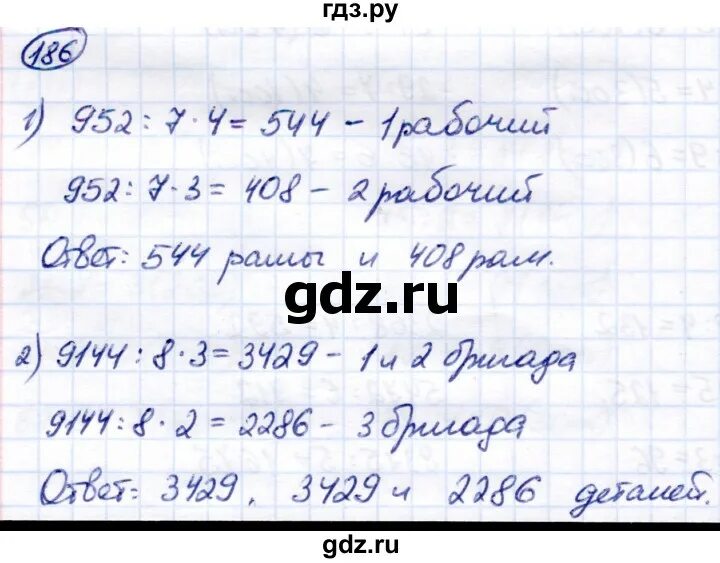 гдз.ру
186
1) 952 : 7 · 4 = 544 – 1 рабочий
952 : 7 · 3 = 408 – 2 рабочий
Ответ: 544 рамы и 408 рам.
gdz.ru
2) 9144 : 8 · 3 = 3429 – 1 и 2 бригада
9144 : 8 · 2 = 2286 – 3 бригада
Ответ: 3429, 3429 и 2286 деталей.
gdz.ru